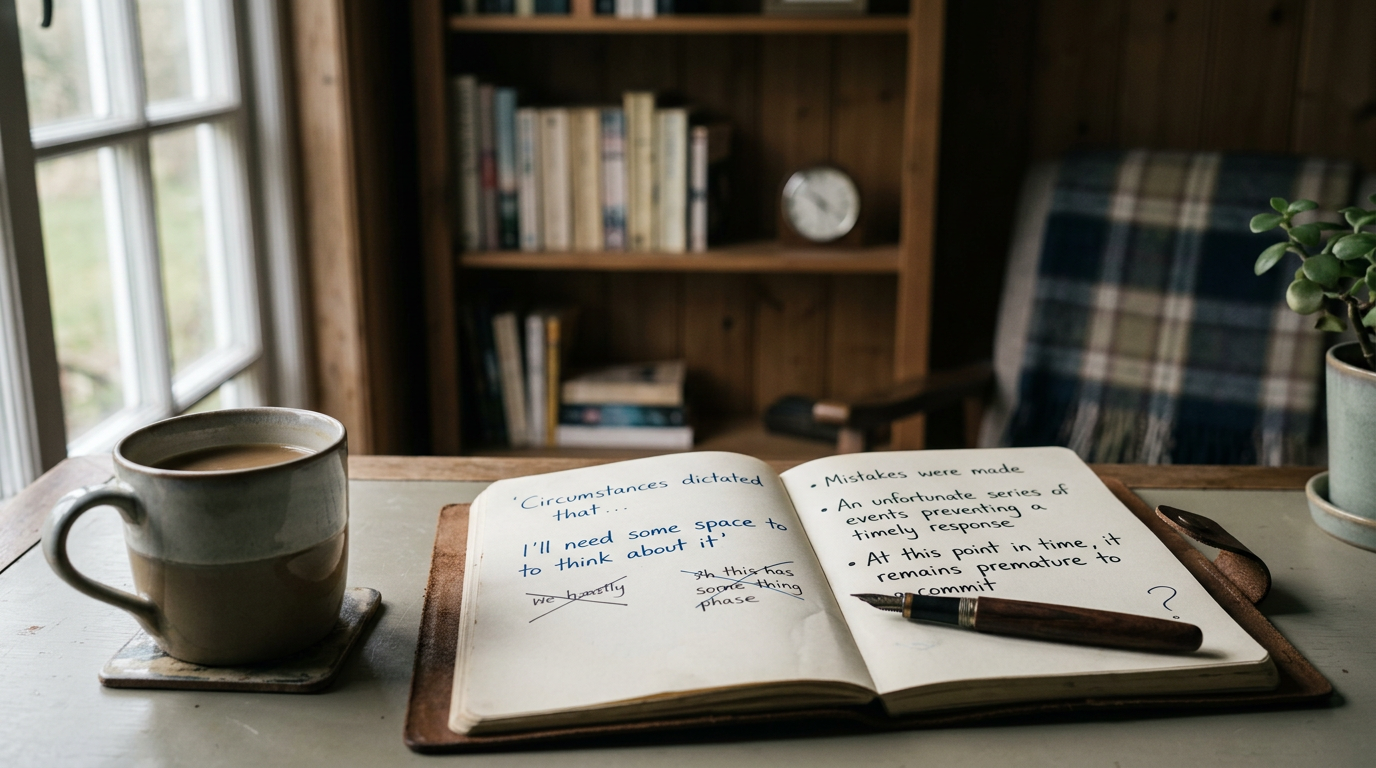 'Circumstances dictated
that ...
I'll need some space to
to think about it'
this has
some thing
phase
• Mistakes were made
• An unfortunate series of
events preventing a
timely response
• At this point in time, it
remains premature to
commit
?